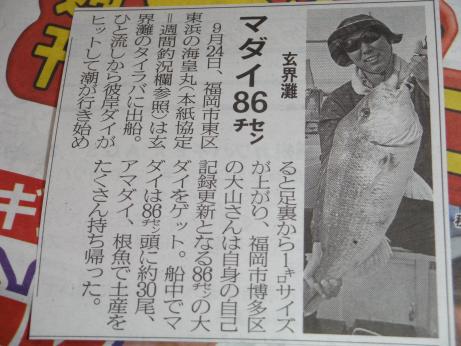 玄界灘
マダイ86㌢
９月24日、福岡市東区
東浜の海皇丸（本紙協定
＝週間釣況欄参照）は玄
界灘のタイラバに出船。
ひと流しから彼岸ダイが
ヒットして潮が行き始め
ると足裏から１㌔サイズ
が上がり、福岡市博多区
の大山さんは自身の自己
記録更新となる86㌢の大
ダイをゲット。船中でマ
ダイは86㌢頭に約30尾、
アマダイ、根魚で土産を
たくさん持ち帰った。